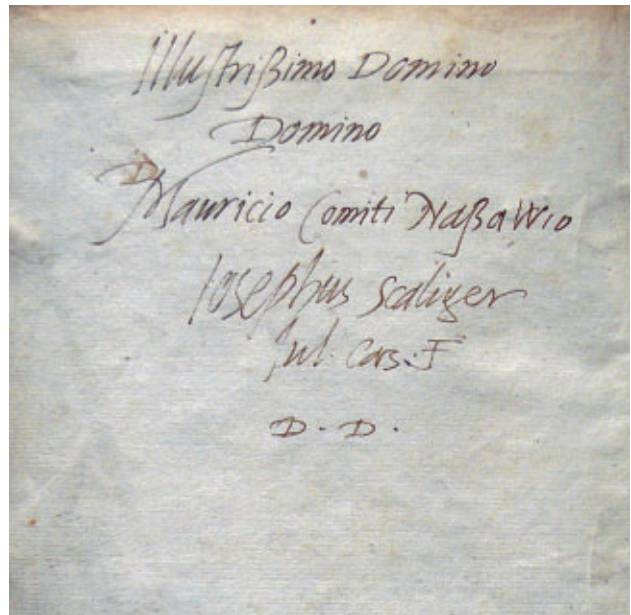 Illustrißimo Domino
Domino
D Mauricio Comiti Naßawio
Iosephus Scaliger
Jul. Caes. F
D. D.